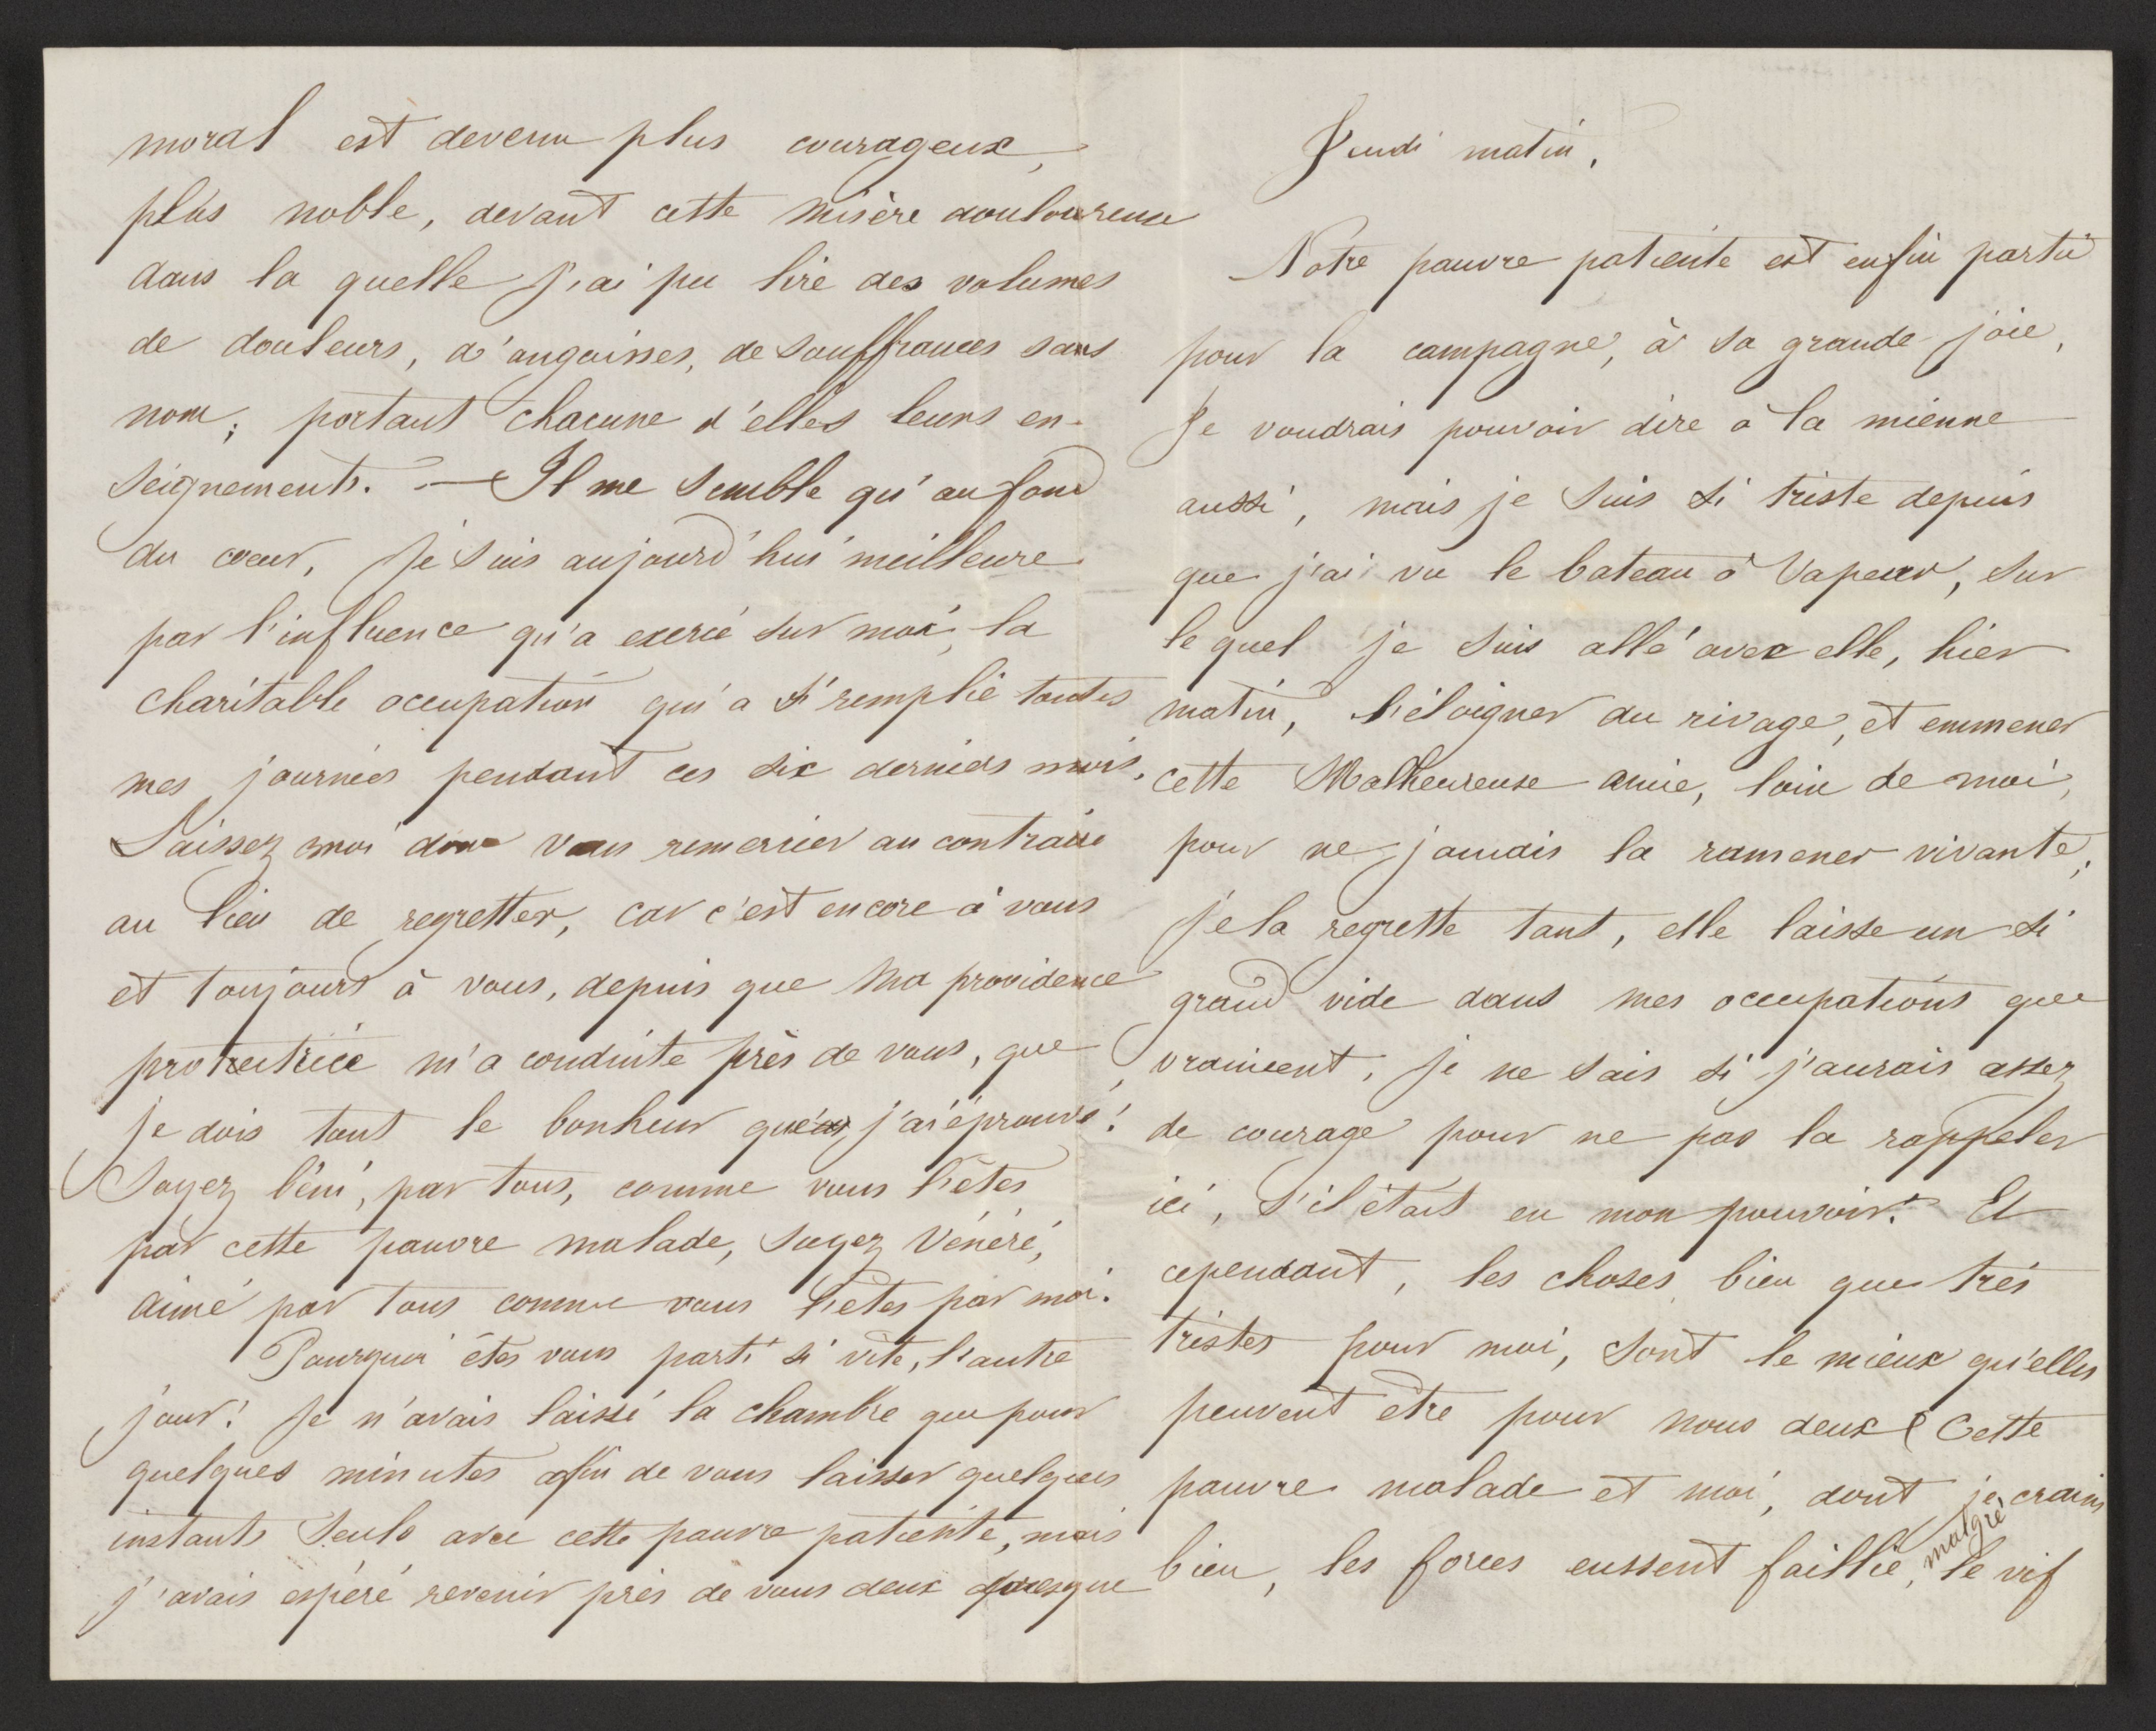 Jeudi matin.
Notre pauvre patiente est enfin partie
pour la campagne, à sa grande joie,
Je voudrais pouvoir dire à la mienne
aussi, mais je suis si triste depuis
que j'ai vu le bateau à vapeur, sur
le quel je suis allé avec elle, hier
matin, s'éloigner du rivage, et emmener
cette Malheureuse amie, loin de moi,
pour ne jamais la ramener vivante,
je la regrette tant, elle laisse un si
grand vide dans mes occupations que
vraiment, je ne sais si j'aurais assez
de courage pour ne pas la rappeler
ici, s'il était en mon pouvoir. Et
cependant, les choses, bien que très
tristes pour moi, sont le mieux qu'elles
peuvent être pour nous deux (Cette
pauvre malade et moi, dont je crains
bien, les forces eussent faillie, malgré le vif
moral est devenu plus courageux,
plus noble, devant cette misère douloureuse
dans la quelle j'ai pu lire des volumes
de douleurs, d'angoisses, de souffrances sans
nom; portant chacune d'elles leurs en-
seignements. — Il me semble qu'au fond
du coeur, je suis aujourd'hui meilleure
par l'influence qu'a exercé sur moi, la
charitable occupation qui a si remplie toutes
mes journées pendant ces six derniers mois.
Laissez moi donc vous remercier au contraire
au lieu de regretter, car c'est encore à vous
et toujours à vous, depuis que ma providence
protectrice m'a conduite près de vous, que
je dois tout le bonheur que j'ai éprouvé!
Soyez béni, par tous, comme vous l'êtes
par cette pauvre malade, soyez vénéré,
aimé par tous comme vous l'êtes par moi.
Pourquoi êtes vous parti si vite, l'autre
jour! Je n'avais laissé la chambre que pour
quelques minutes afin de vous laisser quelques
instants seuls avec cette pauvre patiente, mais
j'avais espéré revenir près de vous deux presque